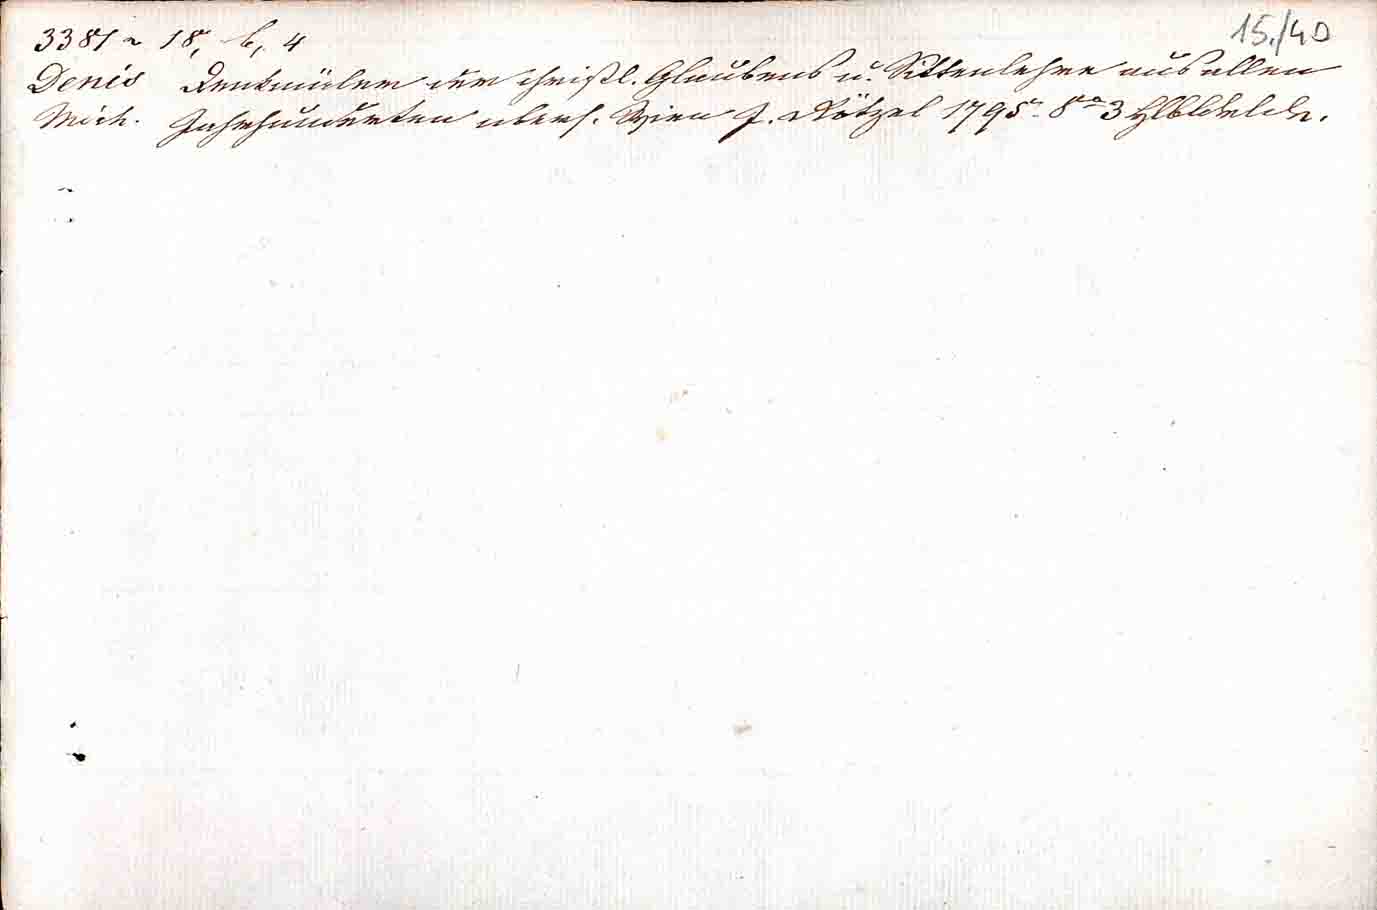 15./40
3381 18, b, 4
Denis Denkmäler der christl. Glaubens u. Sittenlehre aus allen
Mich. Jahrhunderten übers. Wien J. Rötzel 1795 8° 3